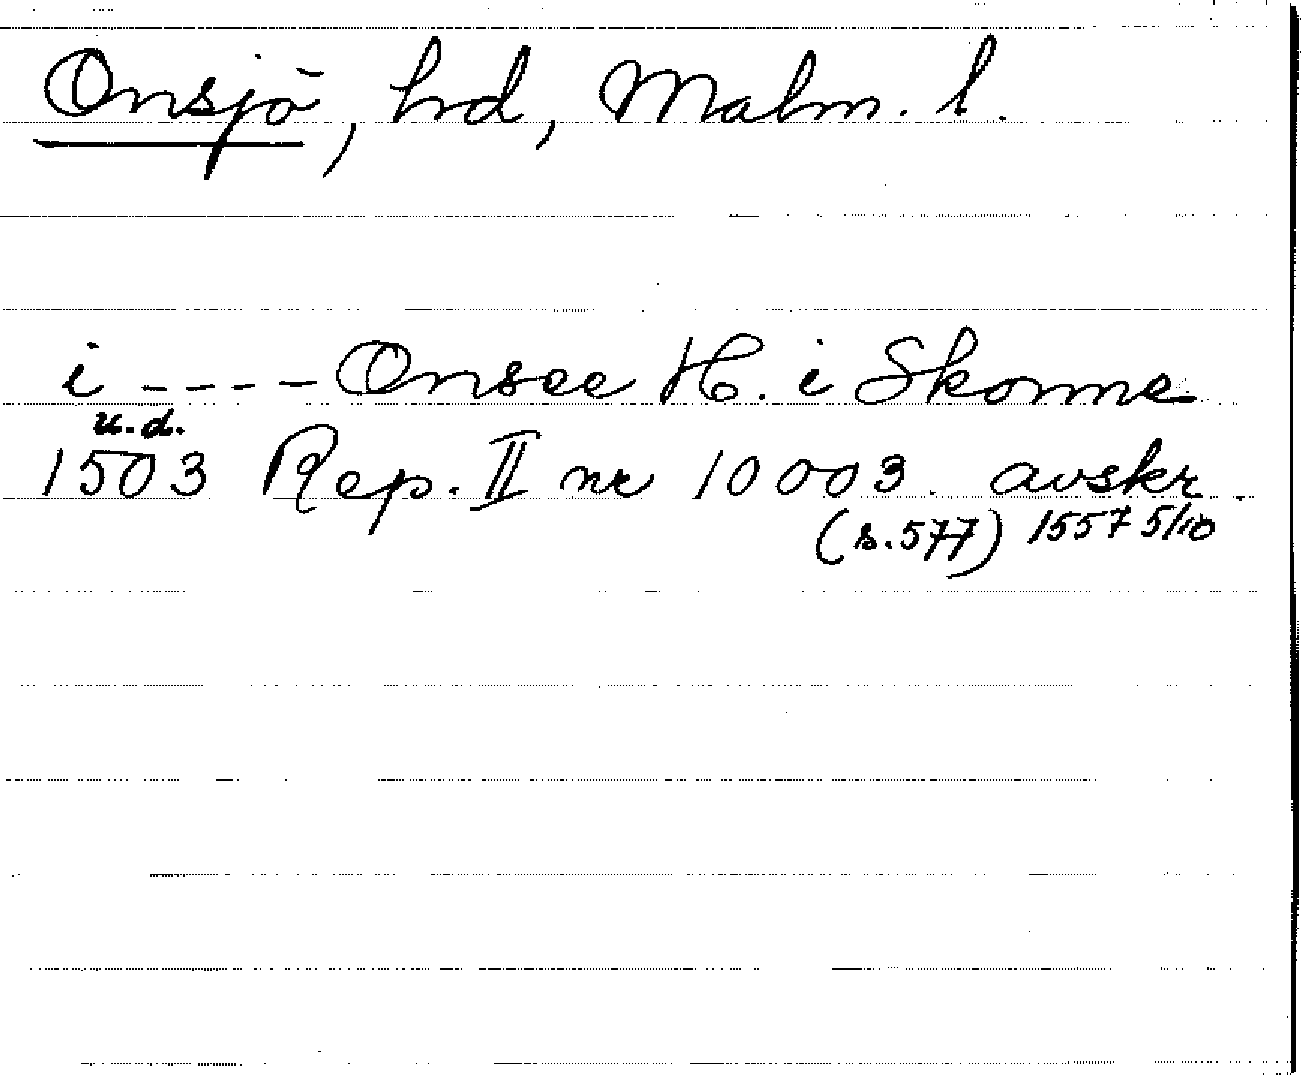 Onsjö, hrd, Malm. l.
i ---- Onsee H. i Skonne
u.d.
1503 Rep. II nr 10003. avskr.
(s.577) 1557 5/10